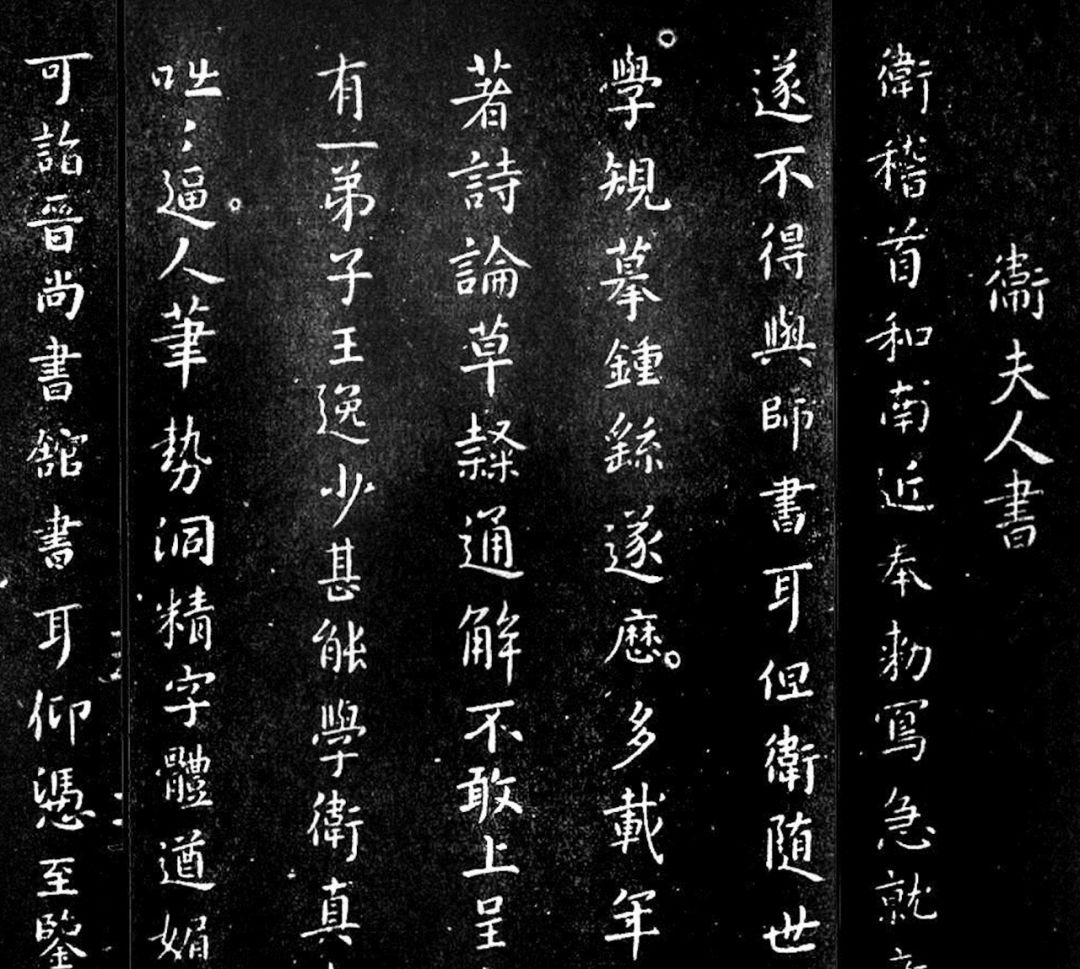 衛夫人書
衛稽首和南近奉勑寫急就
遂不得與師書耳但衛随世
學規摹鍾繇遂歷多載年
著詩論草隸通解不敢上呈
有一弟子王逸少甚能學衛真
咄〻逼人筆勢洞精字體遒媚
可詣晉尚書館書耳仰憑至鑒